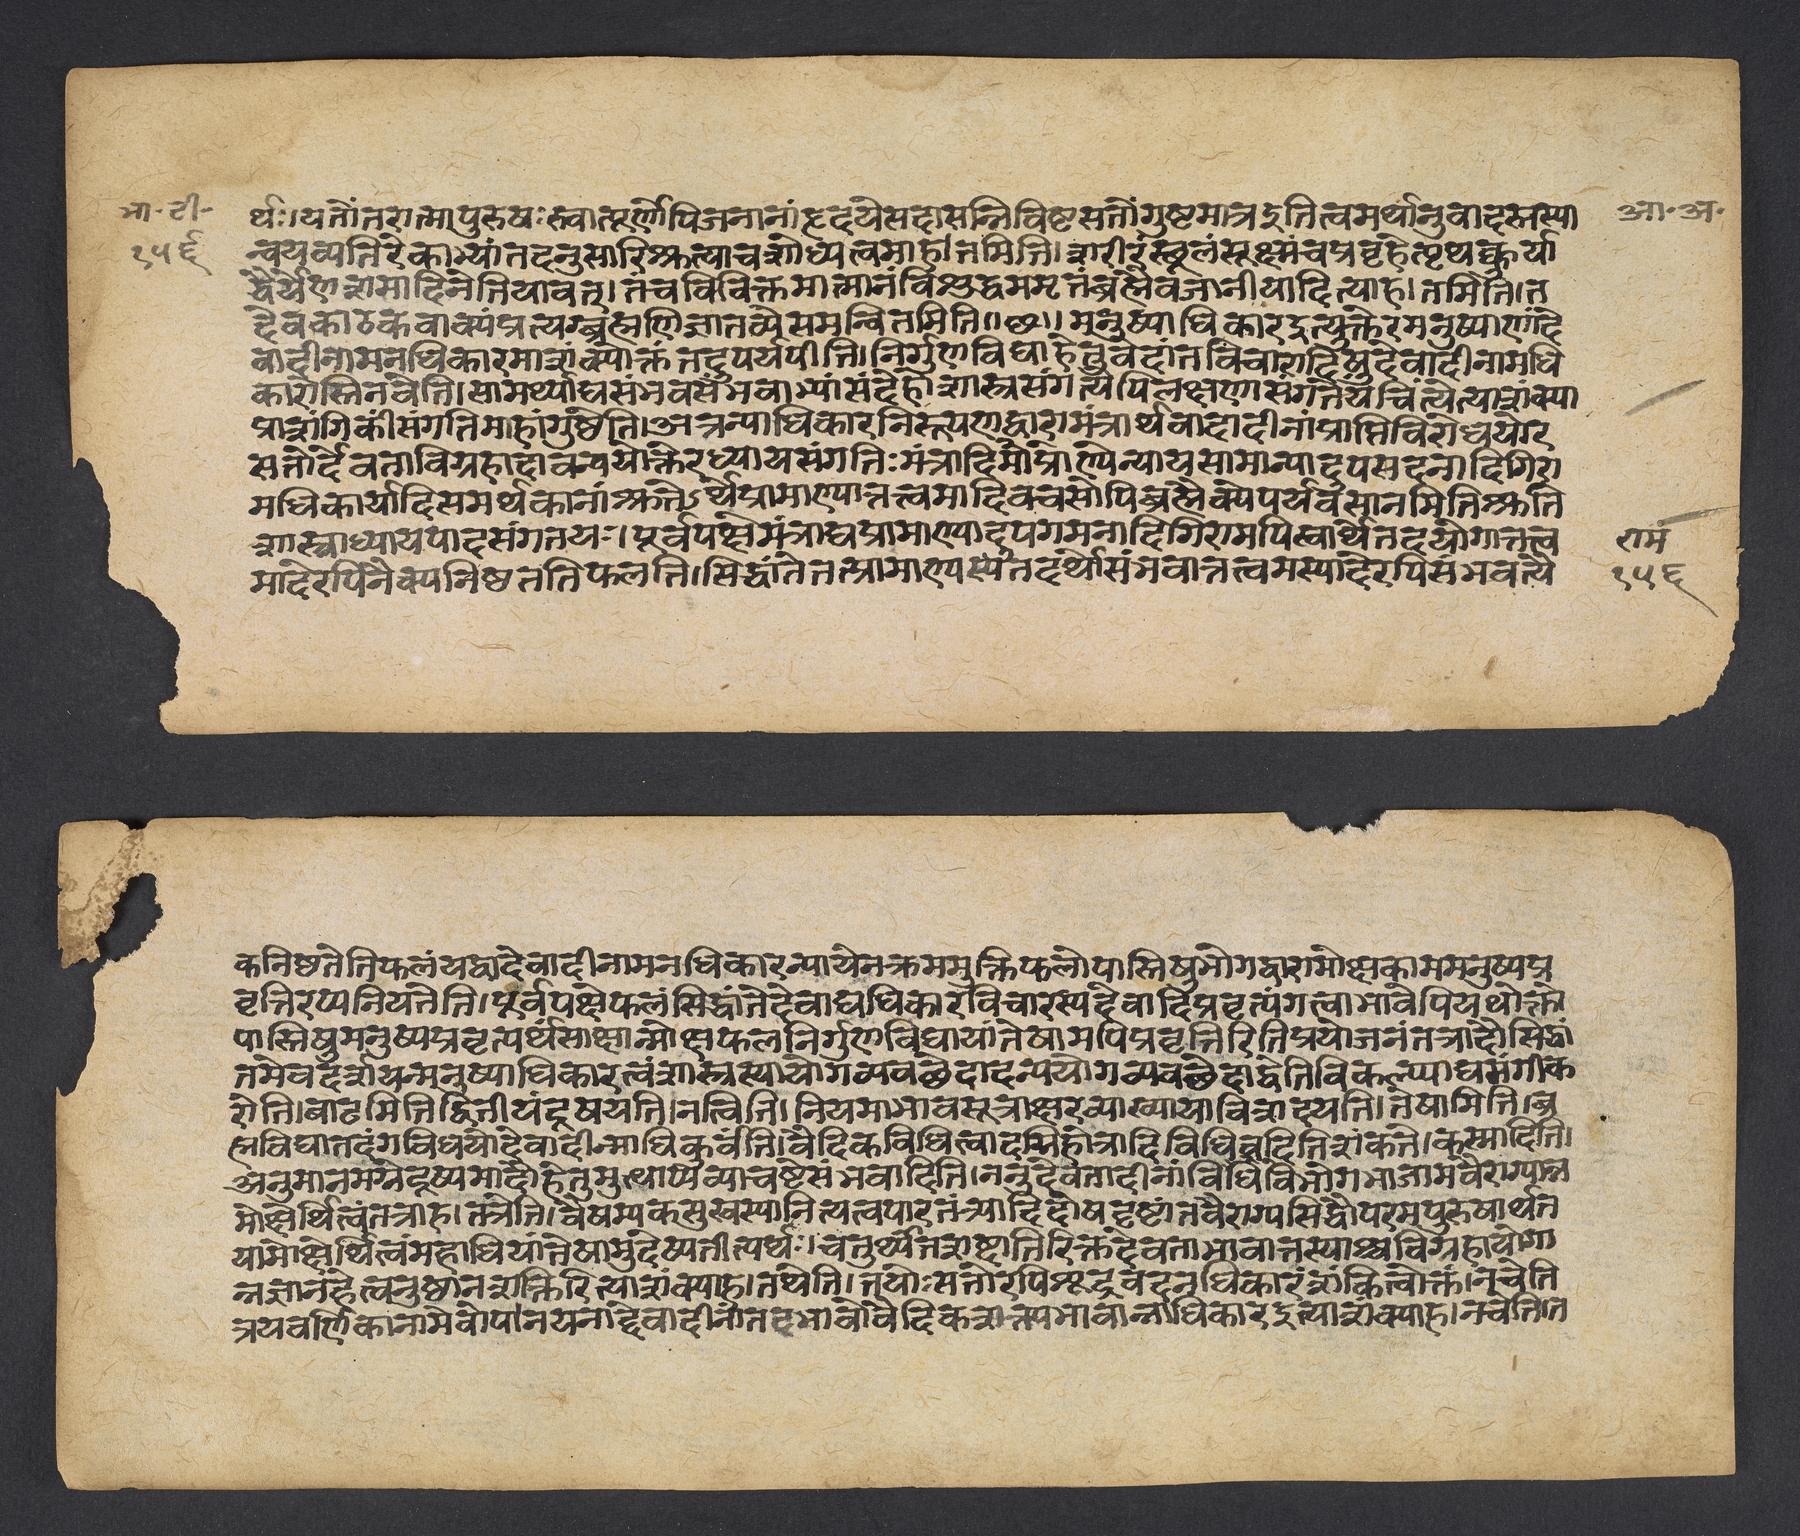 भा॰ टी॰
१५६
आ॰ अ॰
र्थः।यतोंतरात्मापुरुषःस्वात्पूर्णोपिजनानांहृदयेसदासन्निविष्टसतोंगुष्टमात्रइतित्वमर्थानुवादस्तस्या
न्वयव्यतिरेकाभ्यांतदनुसारिश्रुत्याचशोध्यत्वमाह।तमिति।शरीरंस्थूलंसूक्ष्मंचप्रवृहेत्पृथक्कुर्या
द्धैर्येणशमादिनेतियावत्।तंचविविक्तमात्मानंविशुद्धममृतंब्रह्मैवजानीयादित्याह।तमिति।त
दैवकाठकवाक्यंप्रत्यग्ब्रह्मणिज्ञातव्येसमन्वितमिति॥छ॥मनुष्याधिकारइत्युक्तेरमनुष्याणांदे
वादीनामनधिकारमाशंक्योक्तंतदुपर्यपीति।निर्गुणविद्याहेतुवेदांतविचारादिषुदेवादीनामधि
कारोस्तिनवेति।सामर्थ्याद्यसंभवसंभवाभ्यांसंदेहोशास्त्रसंगत्येपिलक्षणासंगतेयंचिंत्येत्याशंक्या
प्राशंगिकींसंगतिमाहांगुष्ठेति।अत्रन्याधिकारनिरूपणद्वारामंत्रार्थवादादीनांप्राप्तिविरोधयोर
सतोर्देवताविग्रहादावन्वयोक्तेरध्यायसंगतिःमंत्रादिमाप्राण्येन्यायसामान्यादुपसदनादिगिरा
मधिकार्यादिसमर्थकानांश्रुतेऽर्थेप्रामाण्यात्तत्त्वमादिवचसोपिब्रह्मैक्येपर्यवसानमितिश्रुति
शास्त्राध्यायपादसंगतयः।पूर्वपक्षेमंत्राद्यप्रामाण्यादुपगमनादिगिरामपिस्वार्थेतदयोगात्तत्त्व
मादेरपिनैक्यनिष्ठततिफलति।सिद्धांतेतत्प्रामाण्यस्यतदर्थोसंभवात्तत्त्वमस्यादेरपिसंभवत्यै
राम
१५६
कनिष्ठतेतिफलंयद्वादेवादीनामनधिकारन्यायेनक्रममुक्तिफलोपास्तिषुभोगद्वारामोक्षकाममनुष्यप्र
वृत्तिरप्यनियतेति।पूर्वपक्षेफलंसिद्धांतेदेवाद्यधिकारविचारस्यदेवादिप्रवृत्यंगत्वाभावेपियथोक्तो
पास्तिषुमनुष्यप्रवृत्यर्थंसाक्षान्मोक्षफलनिर्गुणविद्यायांतेषामपिप्रवृत्तिरितिप्रयोजनंतत्रादौसिद्धां
तमेवदर्शयन्मनुष्याधिकारत्वंशास्त्रस्यायोगव्यवछेदादन्ययोगव्यवछेदाद्वेतिविकल्प्याद्यमंगीक
रोति।बाढमितिद्वितीयंदूषयति।नत्विति।नियमाभावसूत्राक्षरव्याख्यायाविशदयति।तेषामिति।ब्र
ह्मविद्यातदंगविषयोदेवादीन्माधिकर्वंति।वैदिकविधित्वादग्निहोत्रादिविधिवदितिशंकते।कस्मादिति।
अनुमानमग्नेदूष्यमादौहेतुमुत्थाप्यव्याचष्टेसंभवादिति।ननुदेवतादीनांविधिविभोगभाजामवैराग्यान्न
मोक्षेर्थित्वंतत्राह।तत्रेति।वैषम्यकसुखस्यानित्यत्वपारतंत्र्यादिदोषदृष्टांतवैराग्यसिद्धौपरमपुरुषार्थत
यामोक्षेर्थित्वंमहाधियांतेषामुदेष्यतीत्यर्थः।चतुर्थ्यंतशब्दातिरिक्तदेवताभावात्तस्याश्चविग्रहायोगा
न्नज्ञानहेत्वनुष्ठानशक्तिरित्याशंक्याह।तथेति।तयोःसतोरपिशूद्रवदनधिकारंशंकित्वोक्तं।नचेति
त्रयवर्णिकानामेवोपानयनांदेवादीनांतदभावोवैदिकशत्र्यभावान्नाधिकारइत्याशंक्याह।नचेति।त